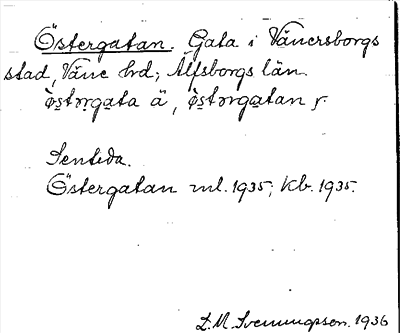 Östergatan. Gata i Vänersborgs
stad, Väne hrd; Älfsborgs län.
östərgata ä, östərgatan r.
Sentida.
Östergatan ml. 1935; Kb. 1935.
D. M. Svenungsson. 1936